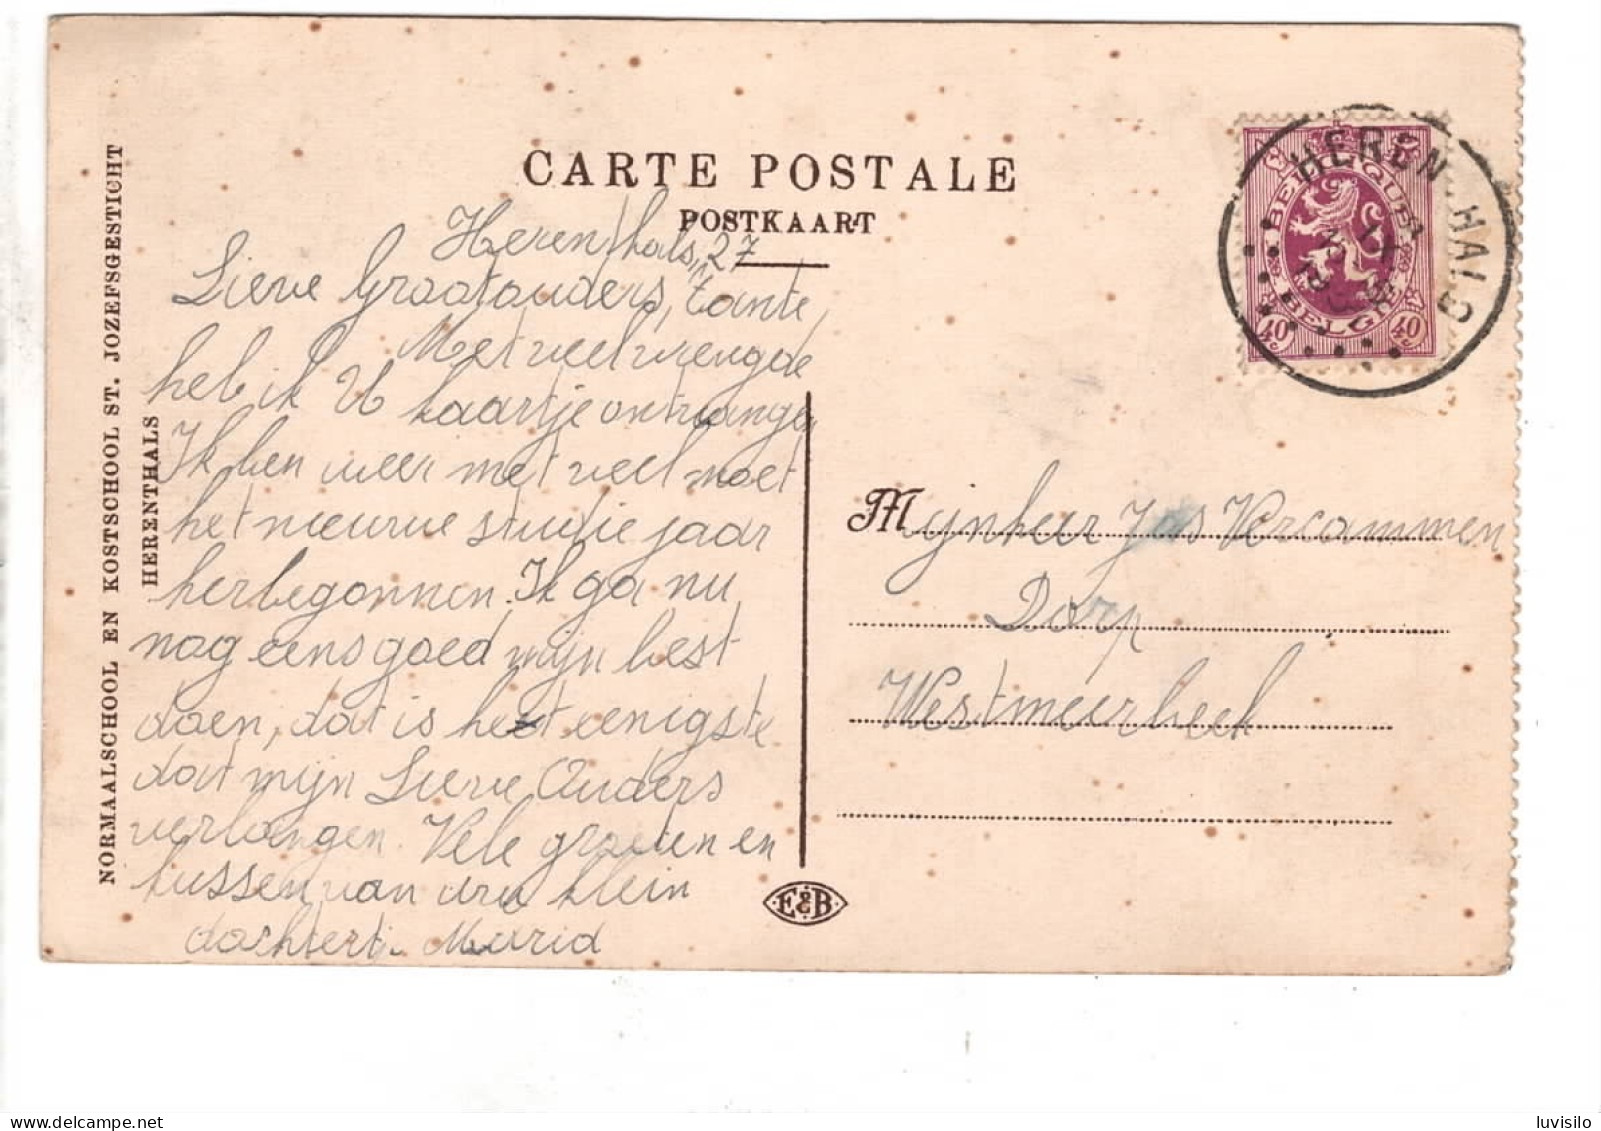 CARTE POSTALE
POSTKAART
NORMAALSCHOOL EN KOSTSCHOOL ST. JOZEFSGESTICHT
HERENTHALS
Herenthals, 27
Lieve Grootouders, Tante,
Met veel vreugde
heb ik U kaartje ontvangen
Ik ben weer met veel moet
het nieuwe studie jaar
herbegonnen. Ik ga nu
nog eens goed mijn best
doen, dat is het eenigste
dat mijn Lieve Ouders
verlangen. Vele groeten en
kussen van uw klein
E&B
BELGIQUE
BELGIE
40c 40c
HERENTHALS
Mijnheer Jos Vercammen
Dorp
Westmeerbeek
luvisilo
delcampe.net